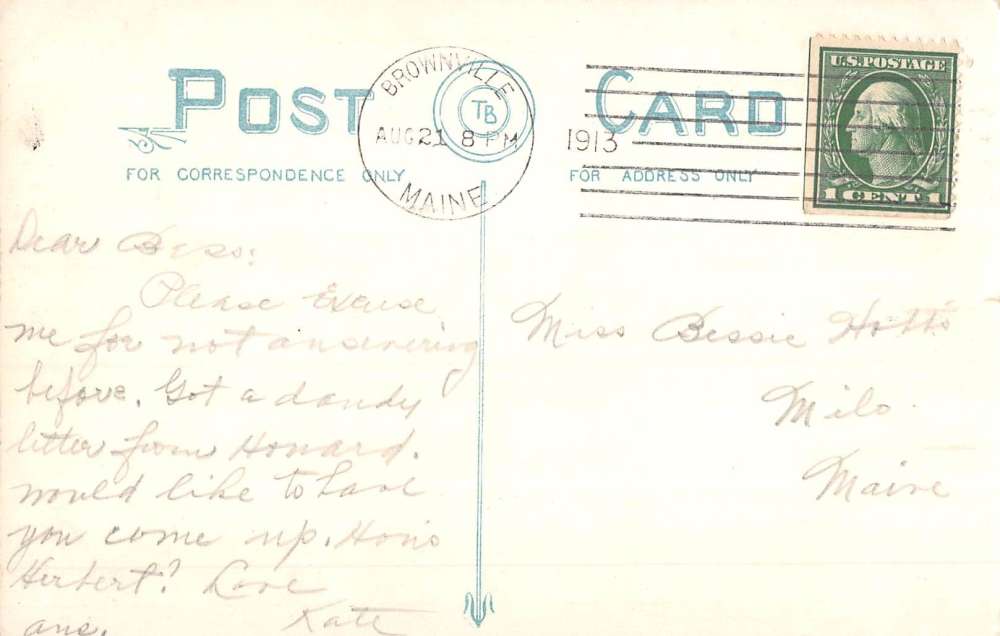 POST CARD
TB
BROWNVILLE
AUG 21 8 PM
1913
MAINE
U.S. POSTAGE
1 CENT 1
FOR CORRESPONDENCE ONLY
FOR ADDRESS ONLY
Dear Bess:
Please Excuse
me for not answering
before. Got a dandy
letter from Howard.
would like to have
you come up. How's
Herbert? Love
ans. Kate
Miss Bessie
Milo.
Maine